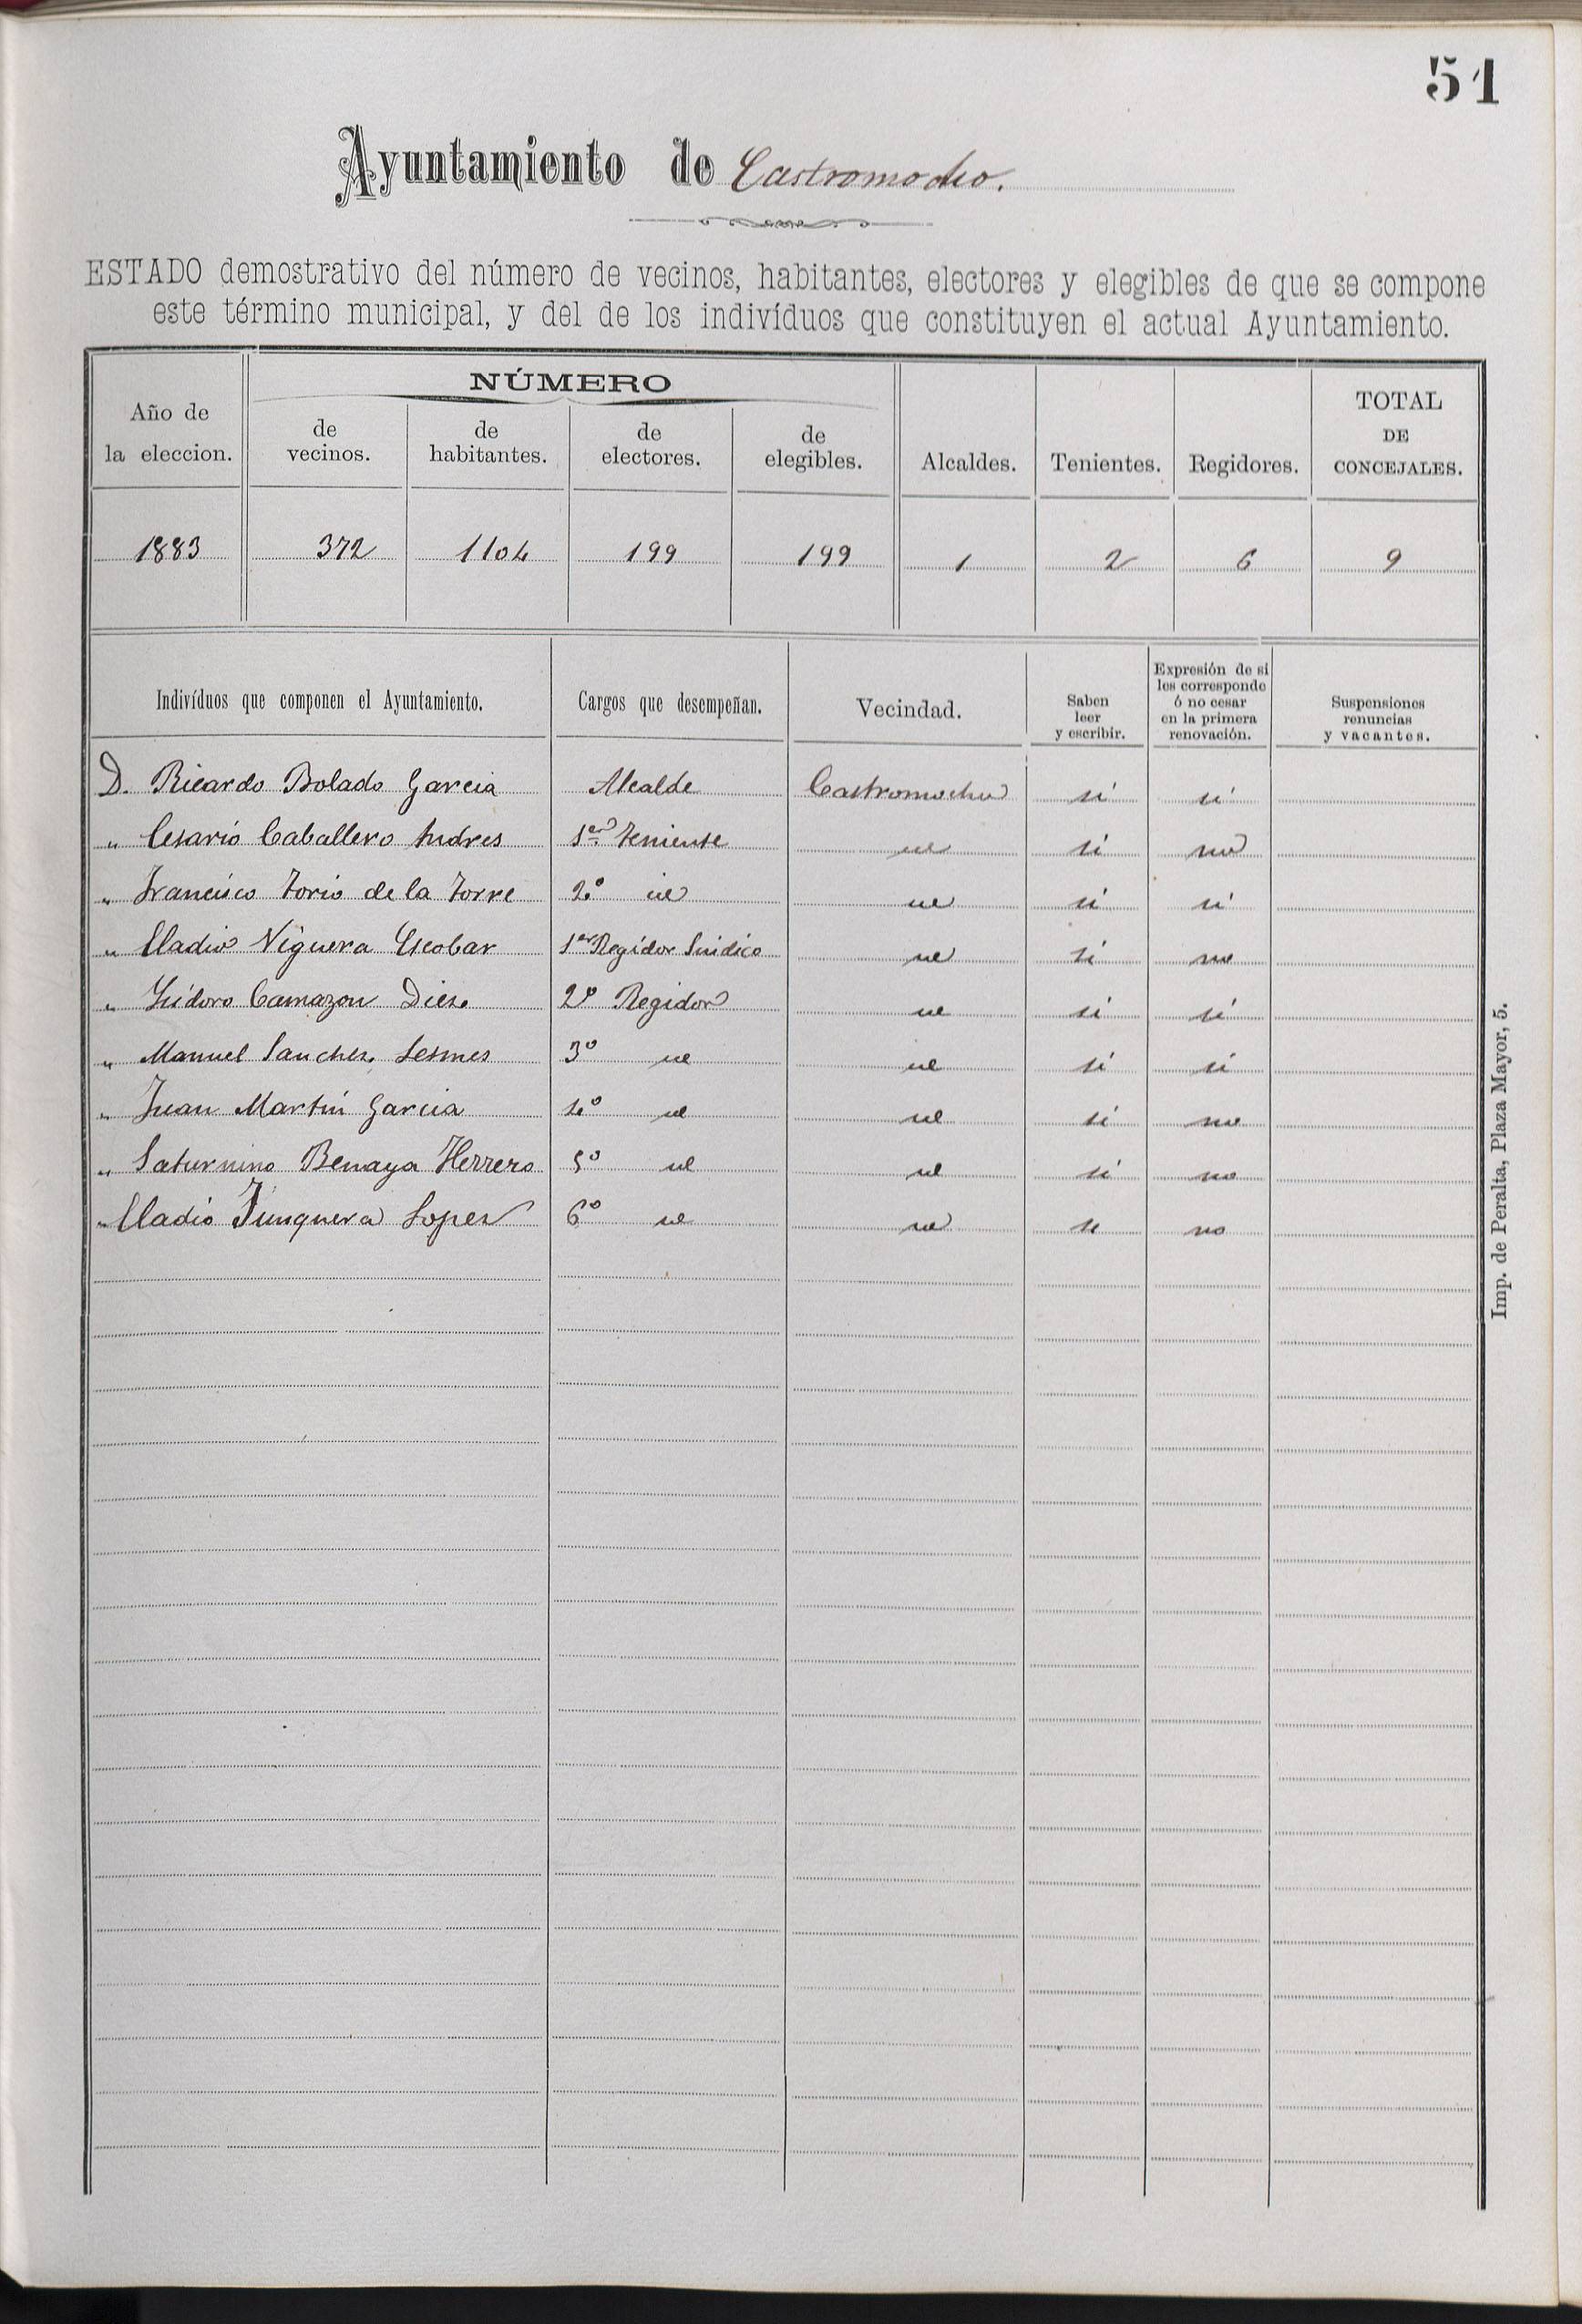 51
Ayuntamiento de Castromocho.
ESTADO demostrativo del número de vecinos, habitantes, electores y elegibles de que se compone
este término municipal, y del de los indivíduos que constituyen el actual Ayuntamiento.
Año de la eleccion. NÚMERO de vecinos. de habitantes. de electores. de elegibles. Alcaldes. Tenientes. Regidores. TOTAL DE CONCEJALES.
1883 372 1104 199 199 1 2 6 9
Indivíduos que componen el Ayuntamiento. Cargos que desempeñan. Vecindad. Saben leer y escribir. Expresión de si les corresponde ó no cesar en la primera renovación. Suspensiones renuncias y vacantes.
D. Ricardo Bolado Garcia Alcalde Castromocho si si
" Cesario Caballero Andres 1er Teniente id si no
" Francisco Torio de la Torre 2º id id si si
" Eladio Niguera Escobar 1er Regidor Sindico id si no
" Ysidoro Camazon Diez 2º Regidor id si si
" Manuel Sanchez Lesmes 3º id id si si
" Juan Martin Garcia 4º id id si no
" Saturnino Benaya Herrero 5º id id si no
" Eladio Junquera Lopez 6º id id si no
Imp. de Peralta, Plaza Mayor, 5.